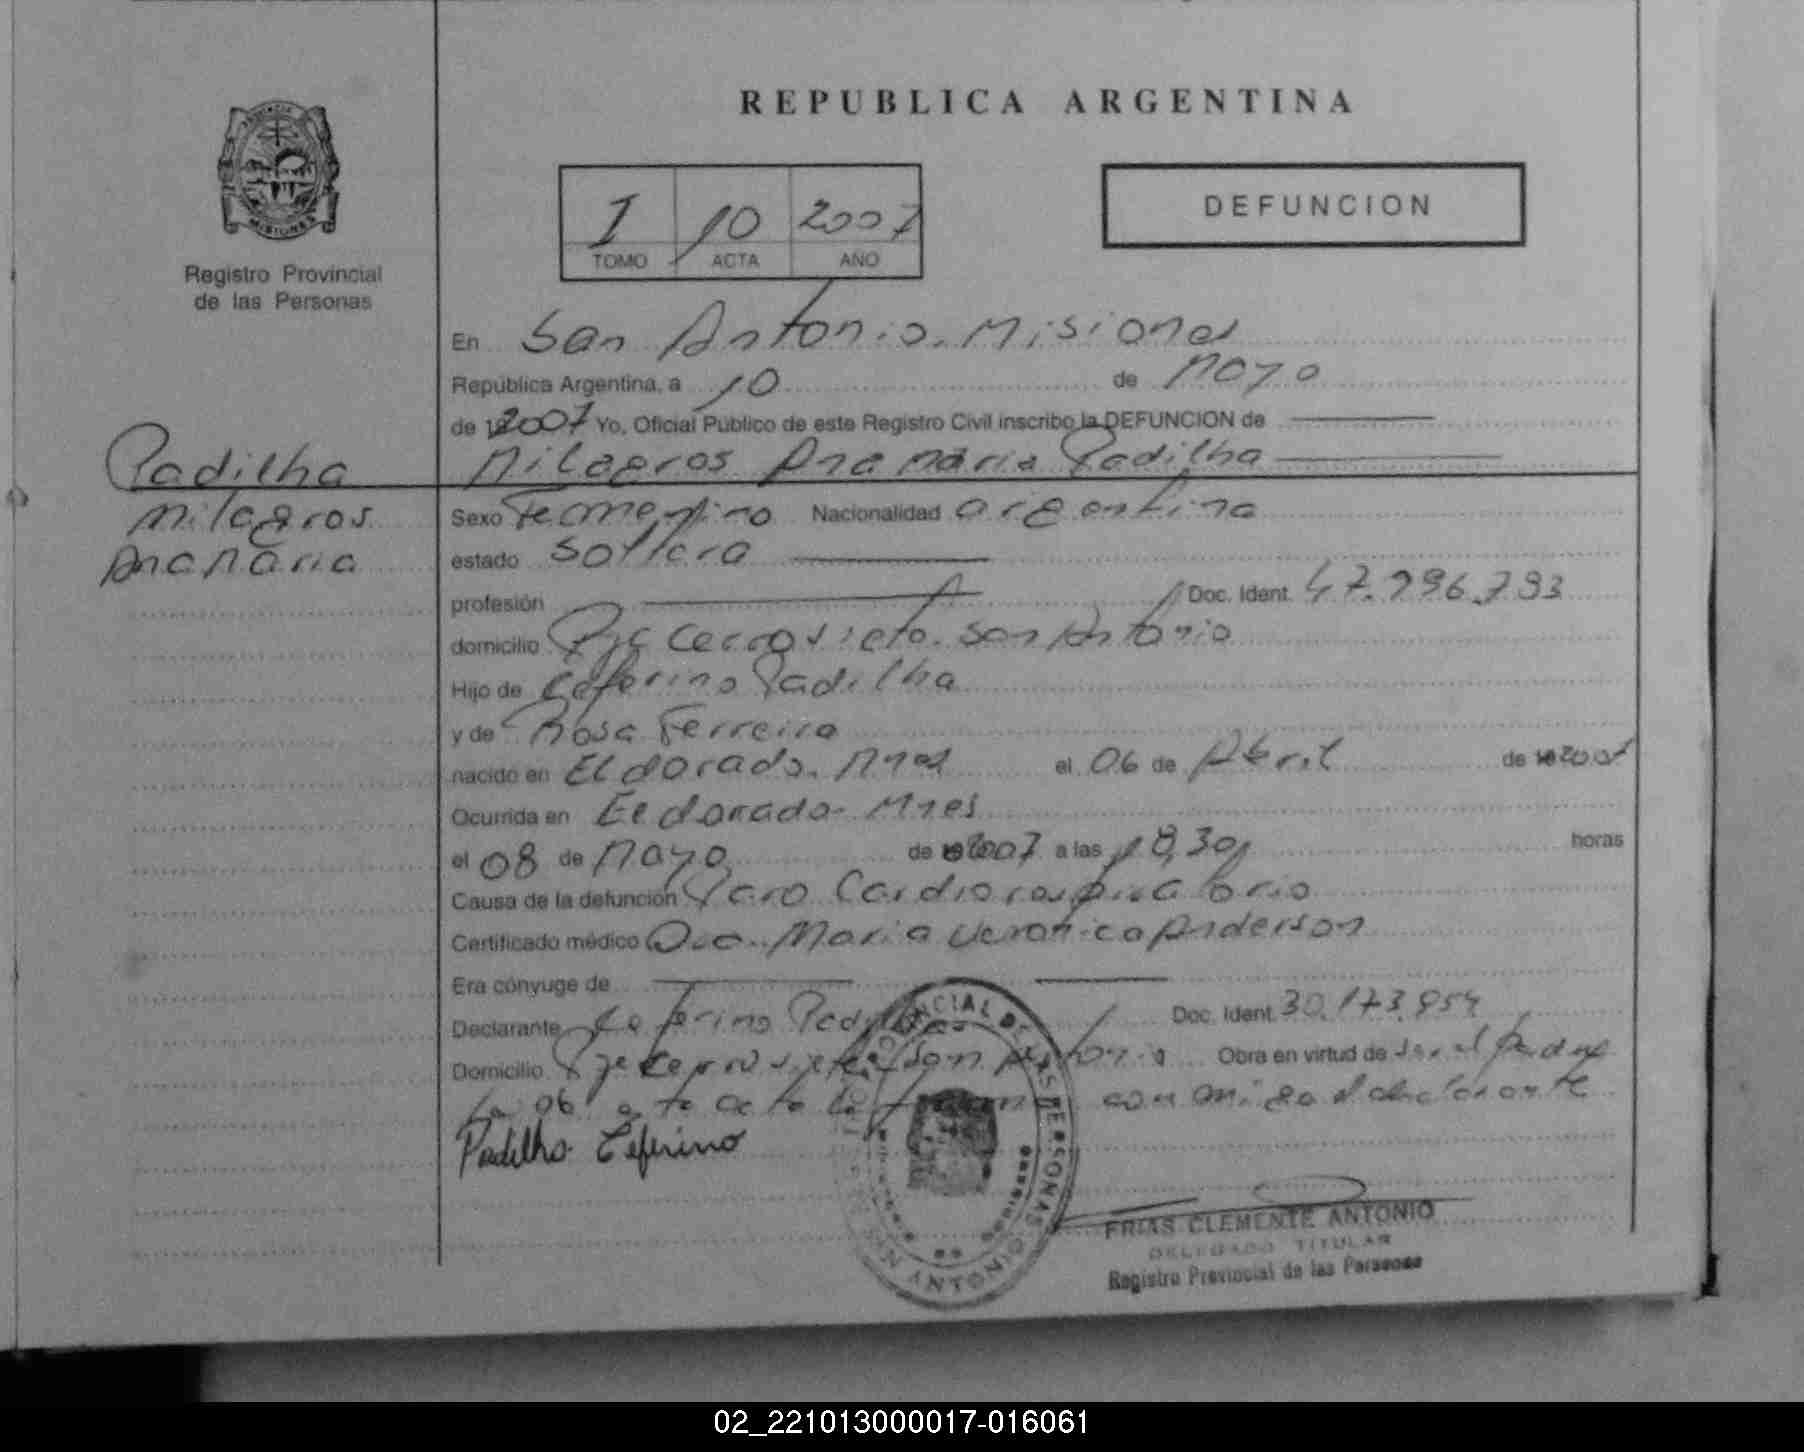 REPUBLICA ARGENTINA
MISIONES
Registro Provincial
de las Personas
I 10 2007
TOMO ACTA AÑO
DEFUNCION
En San Antonio. Misiones
República Argentina, a 10 de Mayo
de 2007 Yo, Oficial Público de este Registro Civil inscribo la DEFUNCION de
Milagros Ana Maria Padilha
Padilha
Milagros
Ana Maria
Sexo Femenino Nacionalidad argentina
estado soltera
profesión Doc. Ident.
domicilio Pje Cerro San Antonio
Hijo de Ceferino Padilha
y de Rosa Ferreira
nacido en Eldorado. Mnes el 06 de Abril de
Ocurrida en Eldorado - Mnes
el 08 de Mayo de 2007 a las 18,30 horas
Causa de la defunción Paro Cardiorespiratorio
Certificado médico Dra. Maria Veronica Anderson
Era cónyuge de
Declarante Ceferino Padilha Doc. Ident. 30.173.954
Domicilio Pje Cerro San Antonio Obra en virtud de
conmigo el declarante
Padilha Ceferino
PROVINCIAL DE LAS PERSONAS
SAN ANTONIO
FRIAS CLEMENTE ANTONIO
DELEGADO TITULAR
Registro Provincial de las Personas
02_221013000017-016061